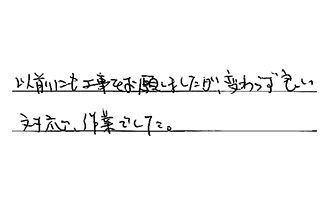 以前にも工事をお願しましたが、変わらず良い
対応、作業でした。